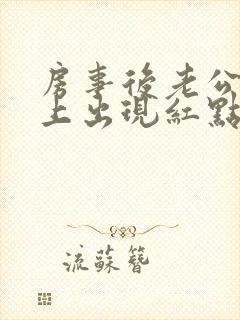 房事後老公
上出現紅點
流蘇簪